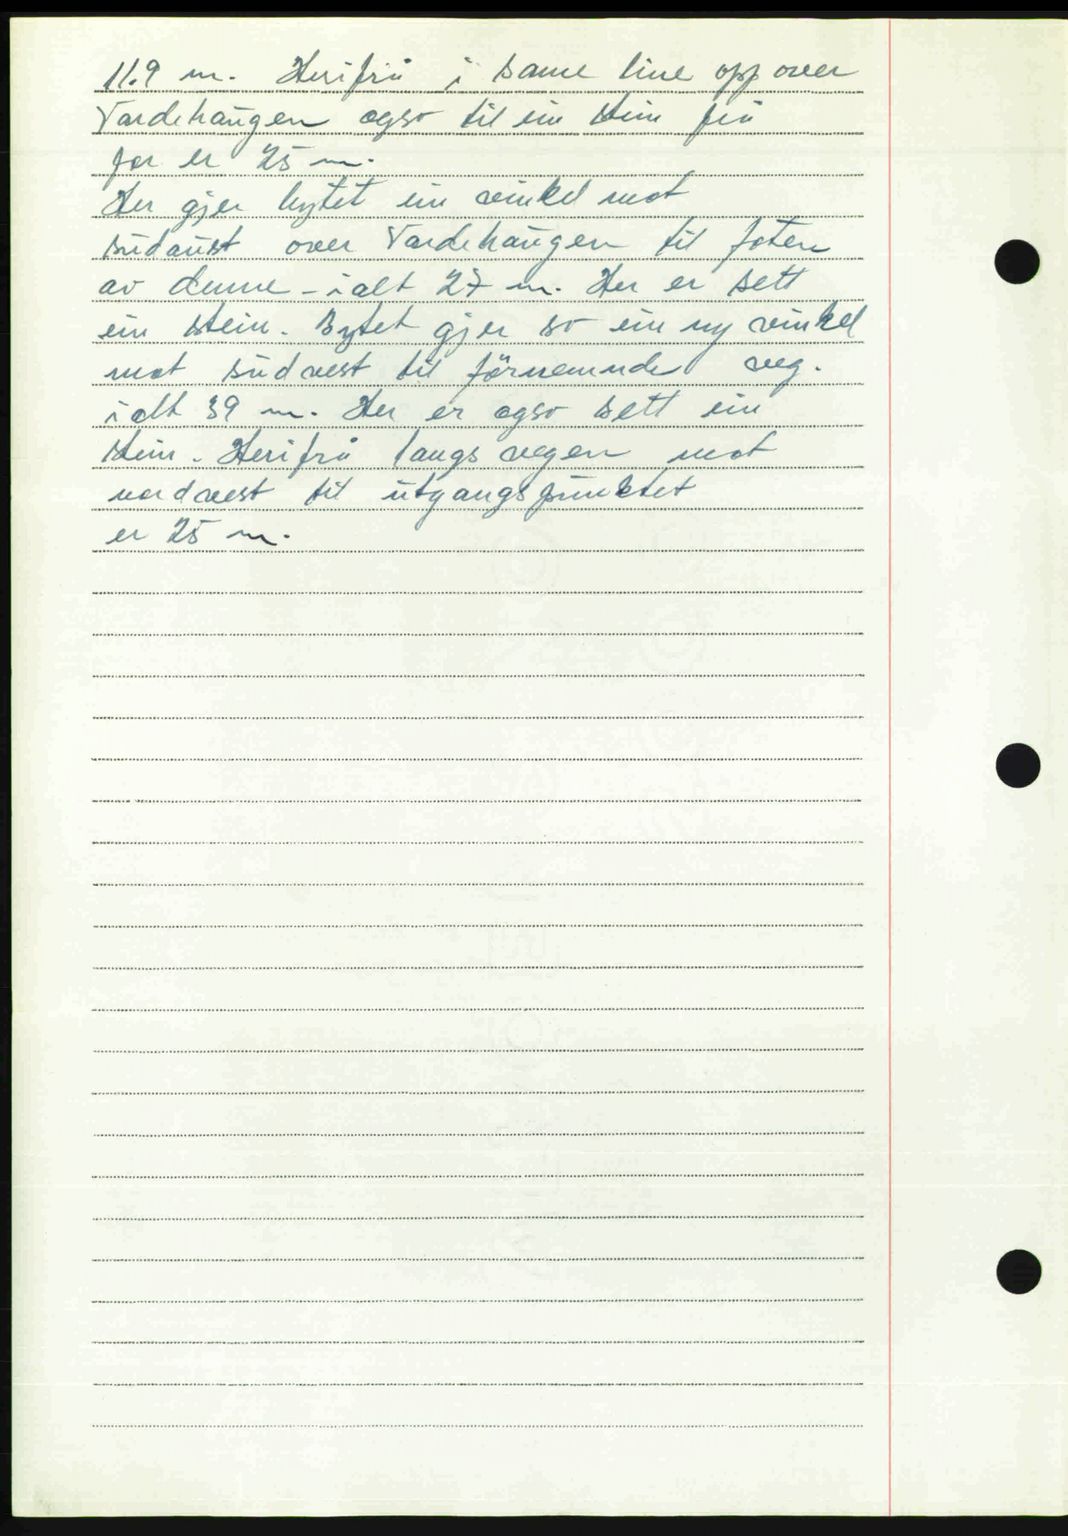 11.9 m. Herifrå i same line oppover
Vardehaugen ogso til ein stein frå
før er 25 m.
Her gjer bytet ein vinkel mot
sudaust over Vardehaugen til foten
av denne - ialt 27 m. Her er sett
ein stein. Bytet gjer so ein ny vinkel
mot sudvest til förnemnde veg.
ialt 39 m. Her er ogso sett ein
stein. Herifrå langs vegen mot
nordvest til utgangspunktet
er 25 m.